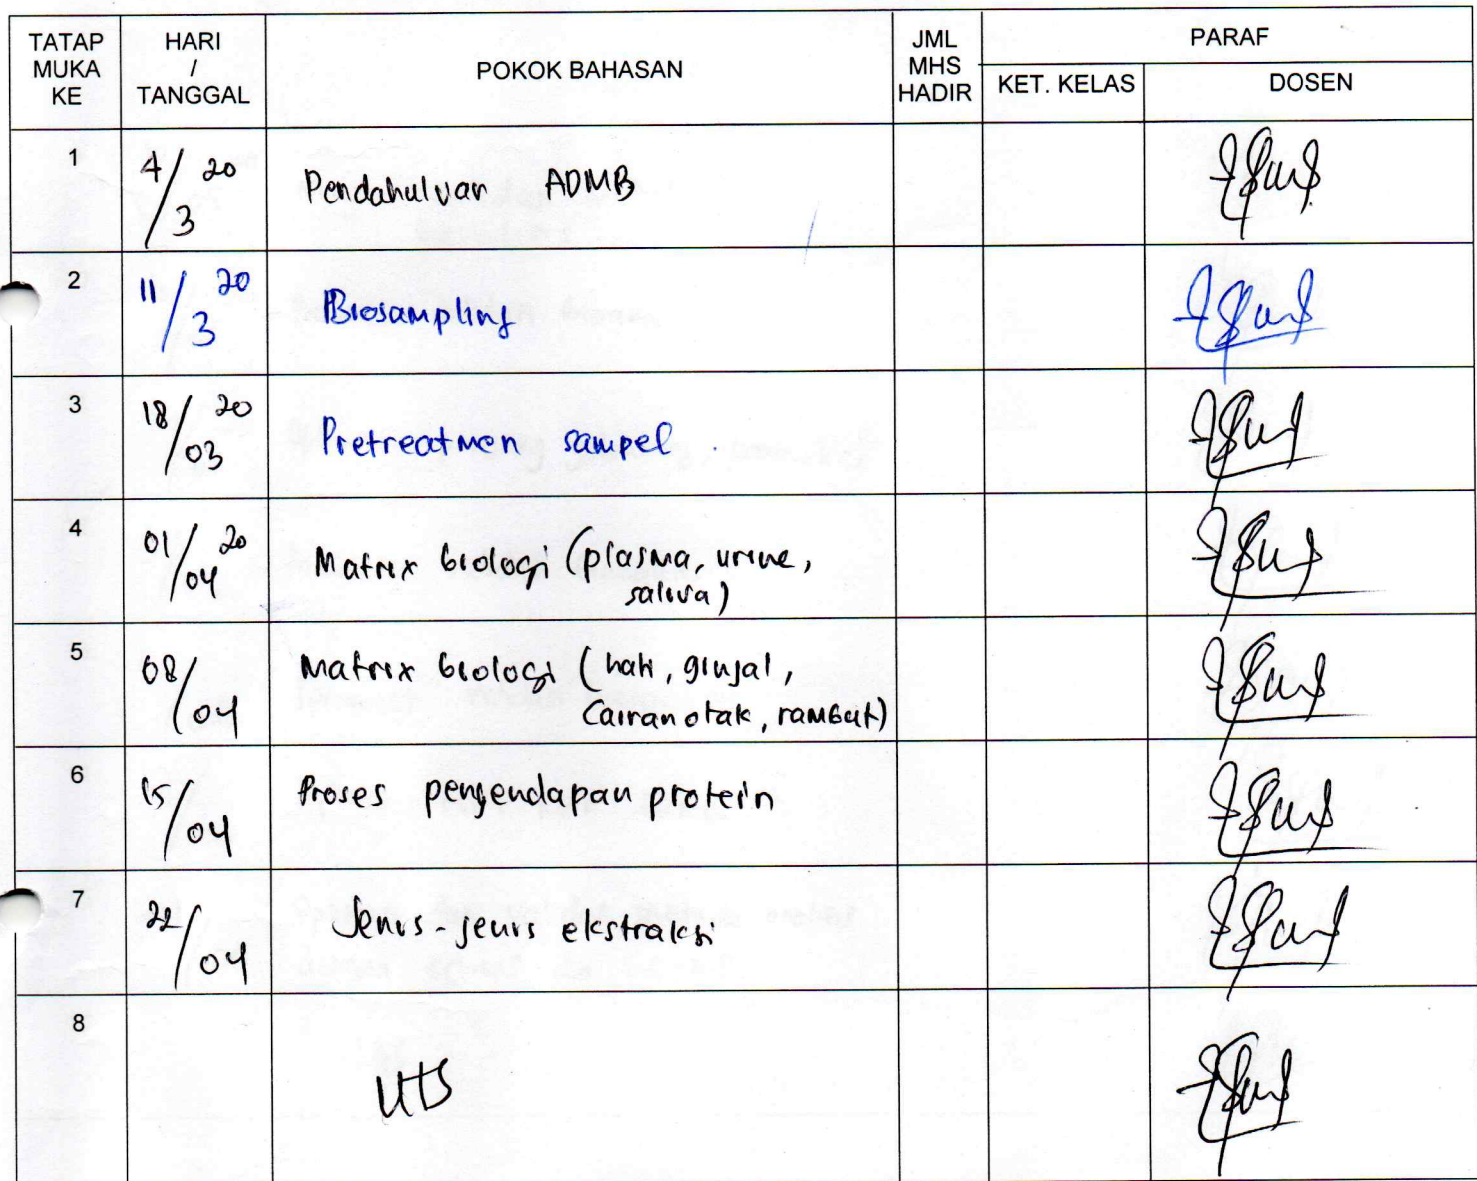 TATAP MUKA KE
HARI / TANGGAL
POKOK BAHASAN
JML MHS HADIR
PARAF
KET. KELAS
DOSEN
1 4/3 20 Pendahuluan ADMB
2 11/3 20 Biosampling
3 18/03 20 Pretreatmen sampel
4 01/04 20 Matrix biologi (plasma, urine,
saliva)
5 08/04 Matrix biologi (hati, ginjal,
Cairan otak, rambut)
6 15/04 Proses pengendapan protein
7 22/04 Jenis-jenis ekstraksi
8 UTS